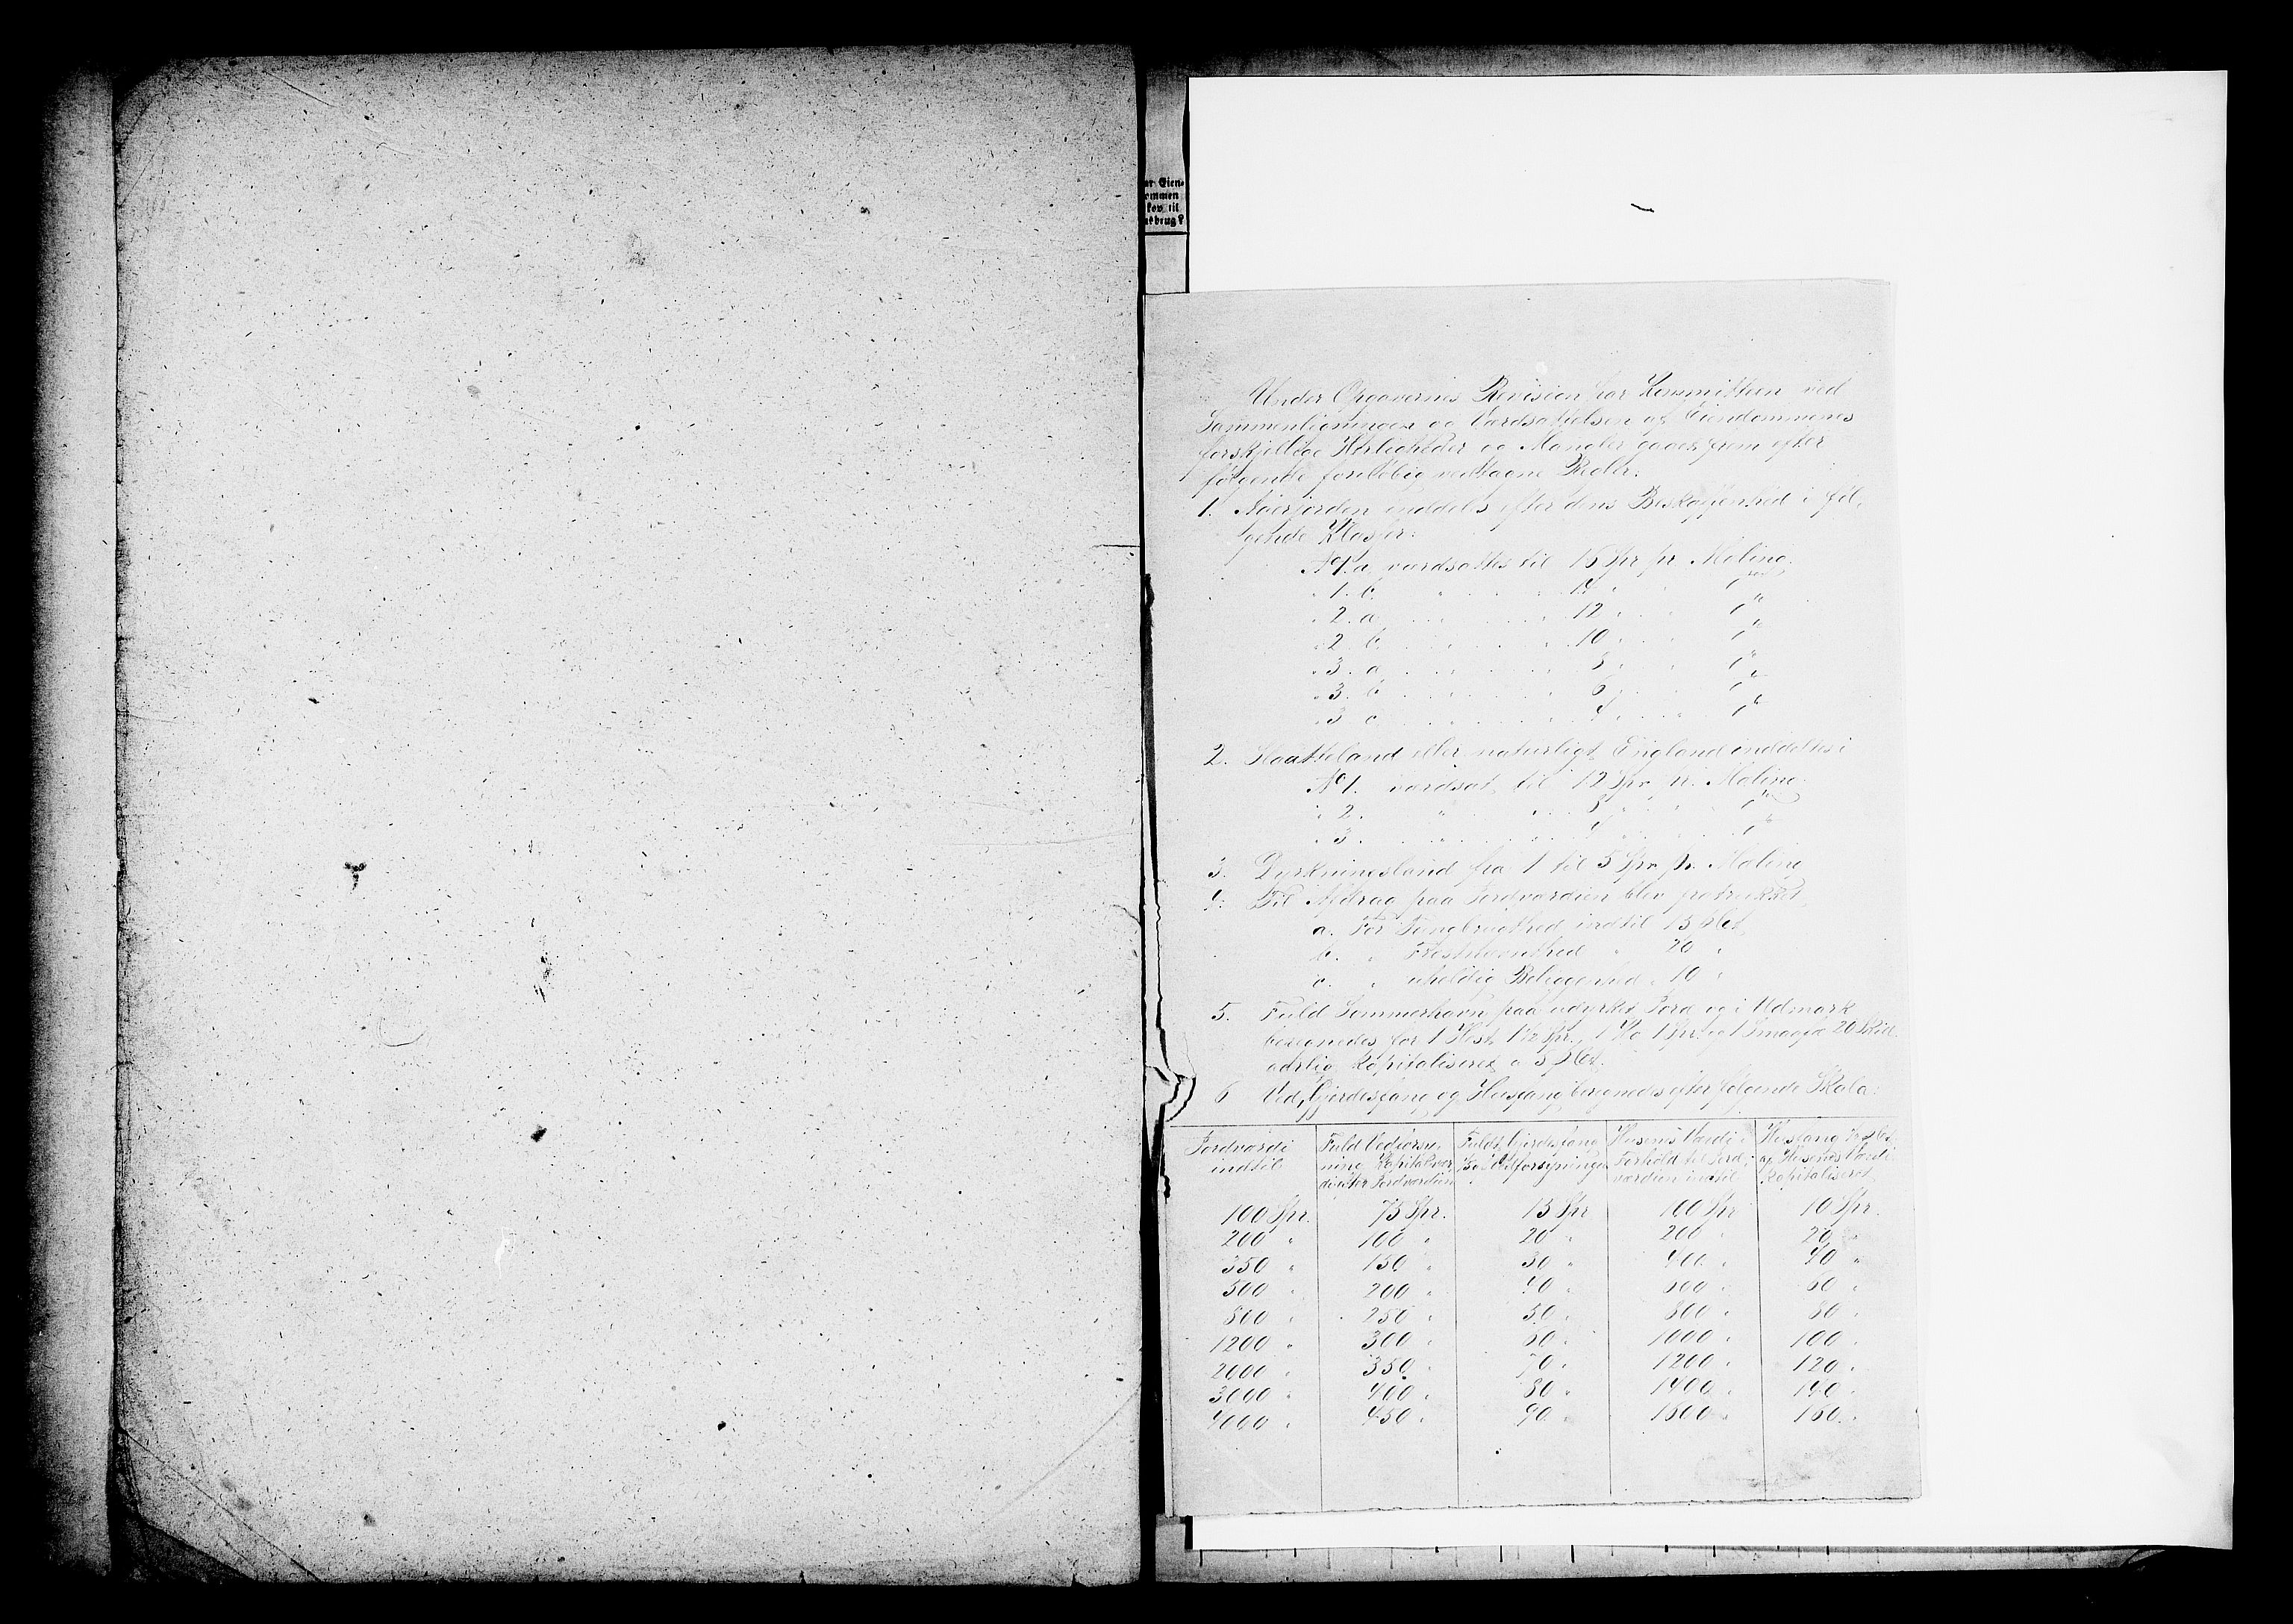 ar Eien-
ommen
kov til
usbrug?
Under Opgavernes Revision har Kommitteen ved
Sammenligningen og Værdsættelsen af Eiendommenes
forskjellige Herligheder og Mangler gaaet frem efter
følgende foreløbig vedtagne Regler:
1. Agerjorden inddeles efter dens Beskaffenhed i føl-
gende Klasser:
No 1. a værdsattes til 16 Spr pr. Maling.
" 1. b. " " 14 " " 1 "
" 2. a " " 12 " " 1 "
" 2. b. " " 10 " " 1 "
" 3. a " " 8 " " 1 "
" 3. b " " 6 " " 1 "
" 3 c " " 4 " " 1 "
2. Slaatteland eller naturligt England inddeltes i
No 1. værdsat til 12 Spr pr. Maling.
" 2. " " 8 " " 1 "
" 3. " " 4 " " 1 "
3. Dyrkningsland fra 1 til 5 Spr. pr. Maling
4. Til Afdrag paa Jordværdien blev fratrukket
a. For Tungbrugthed indtil 15 Pct.
b. " Frostlændthed " 20 "
c. " uheldig Beliggenhed " 10 "
5. Fuld Sommerhavn paa udyrket Jord og i Udmark
beregnedes for 1 Hest 1 1/2 Spr., 1 Ko 1 Spr. og 1 Smaafæ 20 Skil.
aarlig kapitaliseret a 5 Pct.
6 Ved, Gjerdesfang og Husfang beregnedes efter følgende Skala.
Jordværdi indtil | Fuld Vedforsyning Kapitalværdi efter Jordværdien | Fuldt Gjerdesfang | Husenes Værdi i Forhold til Jordværdien indtil | Husfang Pct. af Husenes Værdi kapitaliseret
100 Spr. | 75 Spr. | 15 Spr | 100 Spr | 10 Spr.
200 " | 100 " | 20 " | 200 " | 20 "
350 " | 150 " | 30 " | 400 " | 40 "
500 " | 200 " | 40 " | 600 " | 60 "
800 " | 250 " | 50 " | 800 " | 80 "
1200 " | 300 " | 60 " | 1000 " | 100 "
2000 " | 350 " | 70 " | 1200 " | 120 "
3000 " | 400 " | 80 " | 1400 " | 140 "
4000 " | 450 " | 90 " | 1600 " | 160 "